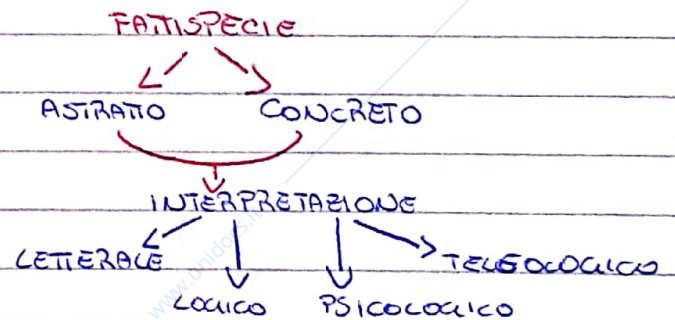 FATTISPECIE
ASTRATTO CONCRETO
INTERPRETAZIONE
LETTERALE TELEOLOGICO
LOGICO PSICOLOGICO